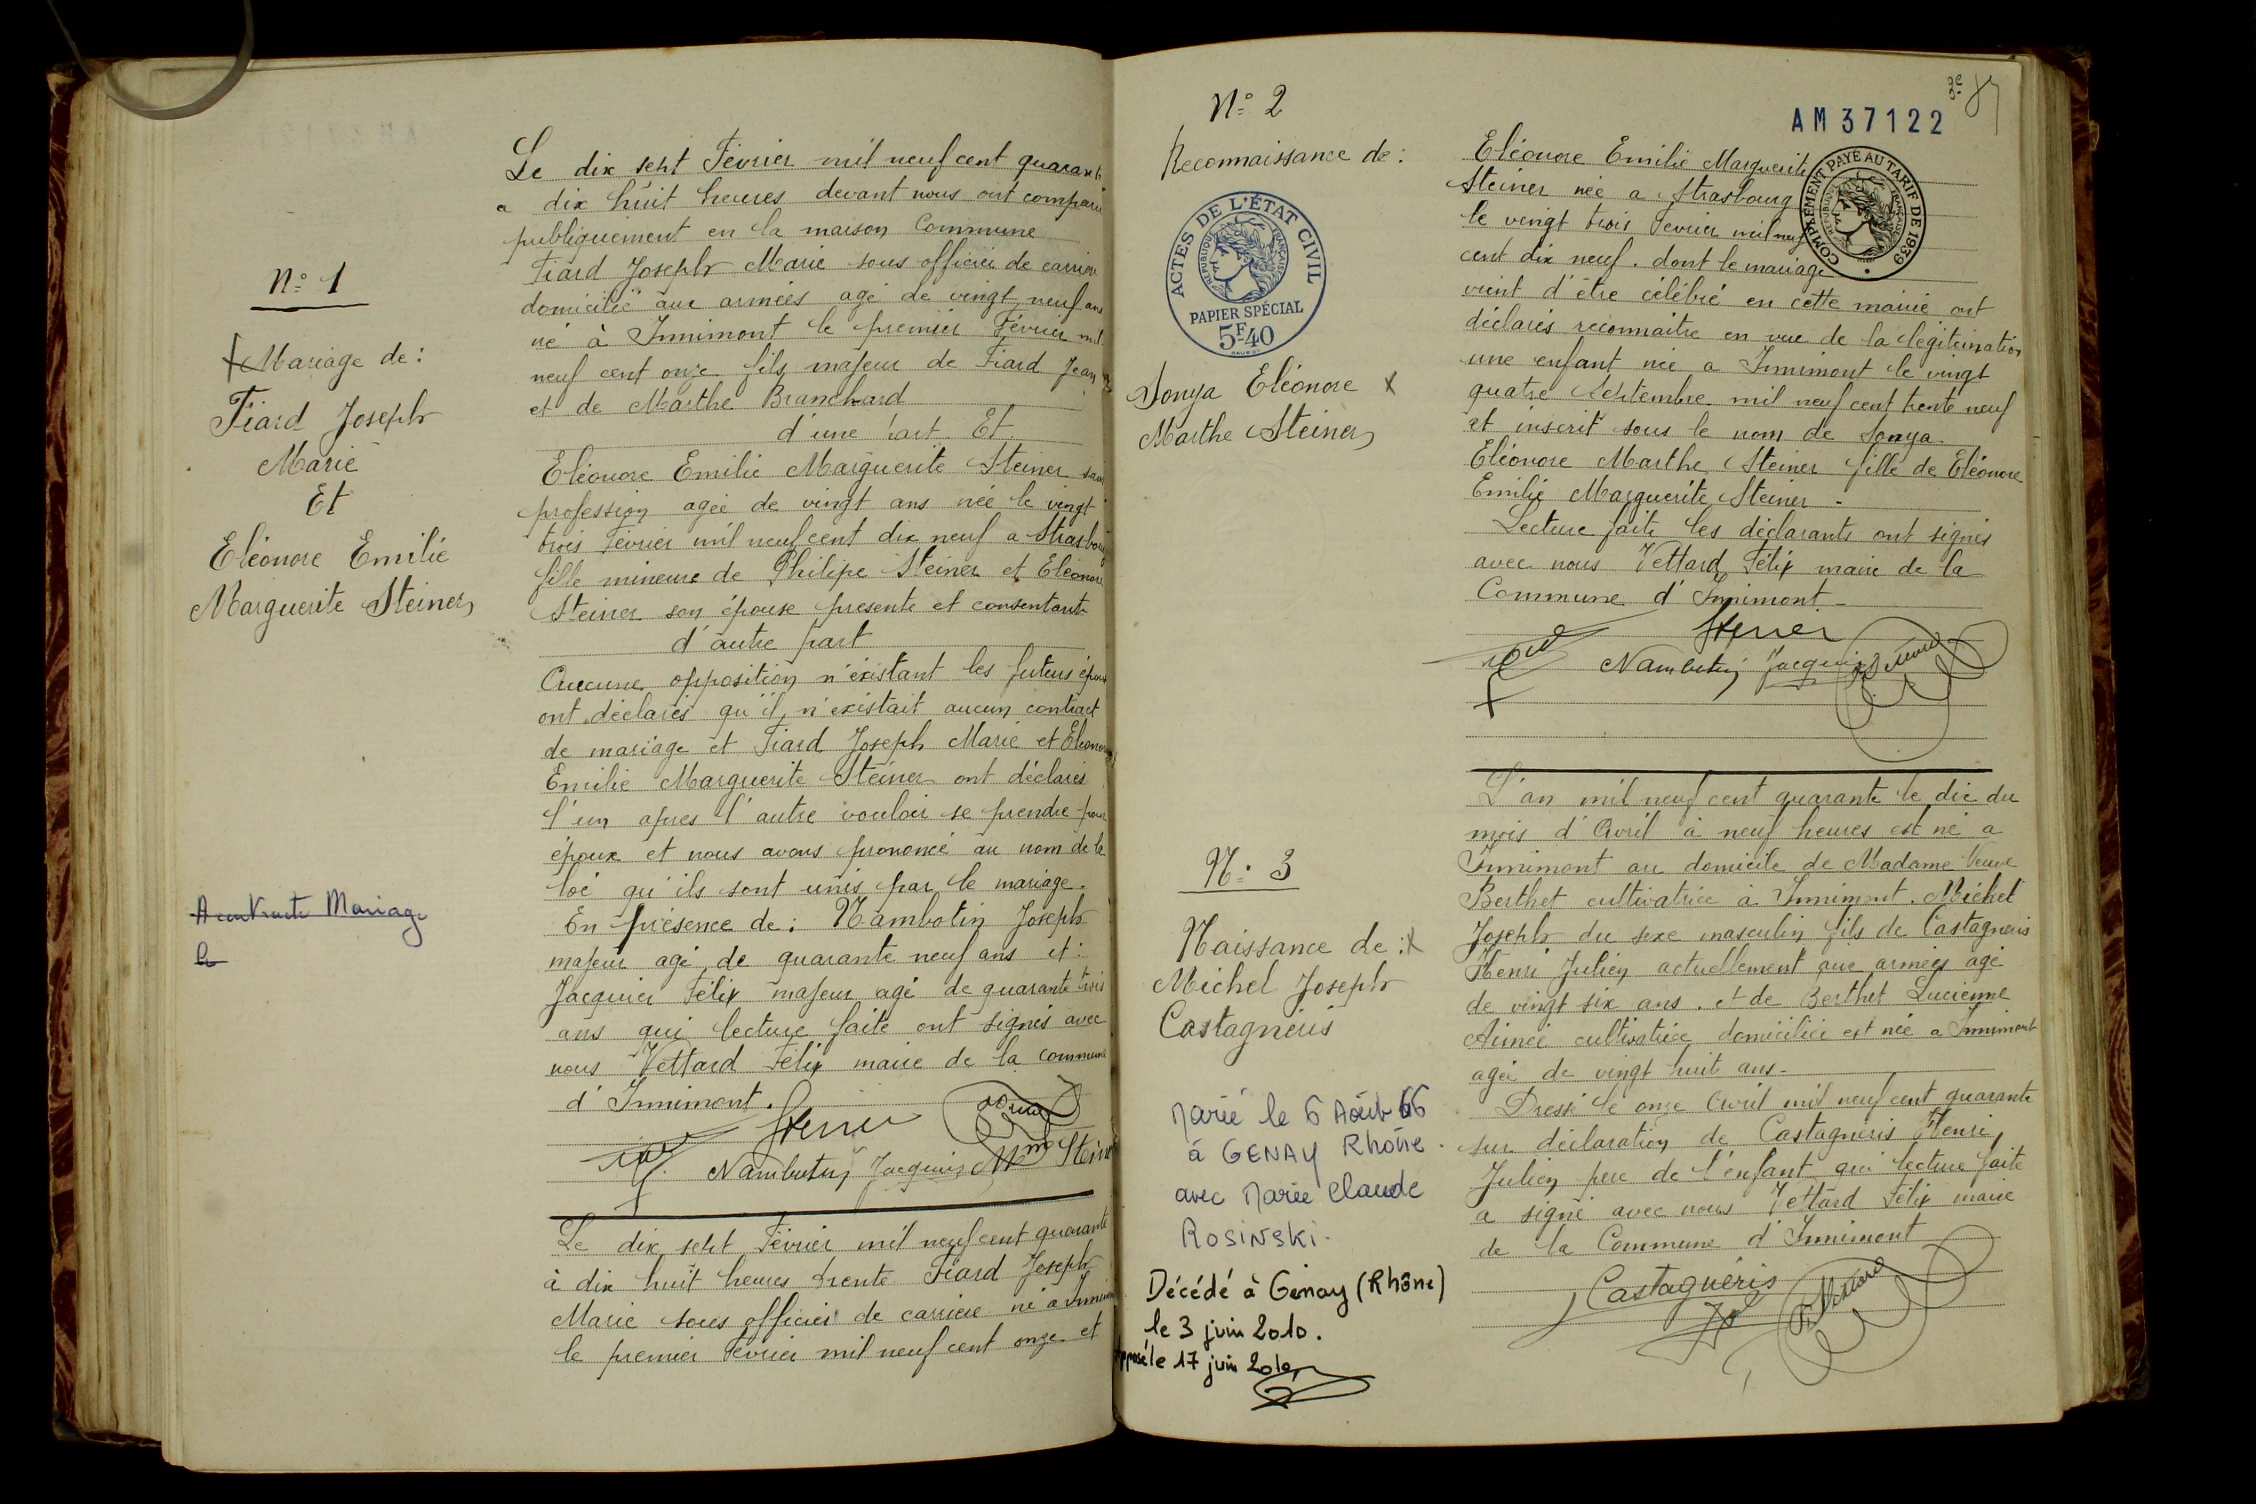 N° 1
Mariage de:
Fiard Joseph
Marie
Et
Eléonore Emilie
Marguerite Steiner
Mariage
Le dix sept Février mil neuf cent quarante
a dix huit heures devant nous ont comparu
publiquement en la maison Commune
Fiard Joseph Marie sous officier de carrière
domicilié aux armées agé de vingt neuf ans
né à Innimont le premier Février mil
neuf cent onze fils majeur de Fiard Jean
et de Marthe Branchard
d'une part Et
Eléonore Emilie Marguerite Steiner sans
profession agée de vingt ans née le vingt
trois Février mil neuf cent dix neuf a Strasbourg
fille mineure de Philipe Steiner et Eléonore
Steiner son épouse presente et consentante
d'autre part
Aucune opposition n'éxistant les futurs époux
ont déclarés qu'il n'éxistait aucun contract
de mariage et Fiard Joseph Marie et Eléonore
Emilie Marguerite Steiner ont déclarés
l'un apres l'autre vouloir se prendre pour
époux et nous avons prononcé au nom de la
loi qu'ils sont unis par le mariage.
En présence de: Nambotin Joseph
majeur agé de quarante neuf ans et:
Jacquier Félix majeur agé de quarante trois
ans qui lecture faite ont signés avec
nous Vettard Félix maire de la commune
d'Innimont.
Steiner
Nambotin Jacquier Mme Steiner
Le dix sept Février mil neuf cent quarante
à dix huit heures trente Fiard Joseph
Marie sous officier de carriere né a Innimont
le premier Février mil neuf cent onze et
N° 2
Reconnaissance de:
ACTES DE L'ÉTAT CIVIL
RÉPUBLIQUE FRANÇAISE
PAPIER SPÉCIAL
5F40
Sonya Eléonore
Marthe Steiner
AM 37122
COMPLÉMENT PAYÉ AU TARIF DE 1939
Eléonore Emilie Marguerite
Steiner née a Strasbourg
le vingt trois Fevrier mil neuf
cent dix neuf. dont le mariage
vient d'être célébré en cette mairie ont
déclarés reconnaitre en vue de la légitimation
une enfant née a Innimont le vingt
quatre Septembre mil neuf cent trente neuf
et inscrit sous le nom de Sonya
Eléonore Marthe Steiner fille de Eléonore
Emilie Marguerite Steiner -
Lecture faite les déclarants ont signés
avec nous Vettard Félix maire de la
Commune d'Innimont
Steiner
Nambotin Jacquier
N° 3
Naissance de:
Michel Joseph
Castagnéris
Marié le 6 Août 66
à GENAY Rhône.
avec Marie Claude
ROSINSKI.
Décédé à Genay (Rhône)
le 3 juin 2010.
Apposé le 17 juin 2010
L'an mil neuf cent quarante le dix du
mois d'Avril à neuf heures est né a
Innimont au domicile de Madame Veuve
Berthet cultivatrice à Innimont. Michel
Joseph du sexe masculin fils de Castagneris
Henri Julien actuellement aux armées agé
de vingt six ans. et de Berthet Lucienne
Aimée cultivatrice domiciliée est née a Innimont
agée de vingt huit ans-
Dressé le onze Avril mil neuf cent quarante
sur déclaration de Castagneris Henri
Julien pere de l'enfant qui lecture faite
a signé avec nous Vettard Félix maire
de la Commune d'Innimont
Castagnéris